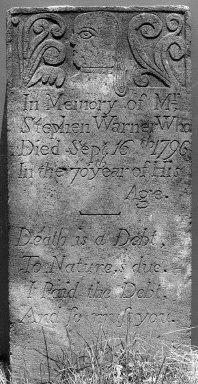 In Memory of Mr
Stephen Warner Who
Died Sept 16th 1796
In the 70 year of His
Age.
Death is a Debt,
To Nature,s due.
I Paid the Debt,
And so must you.